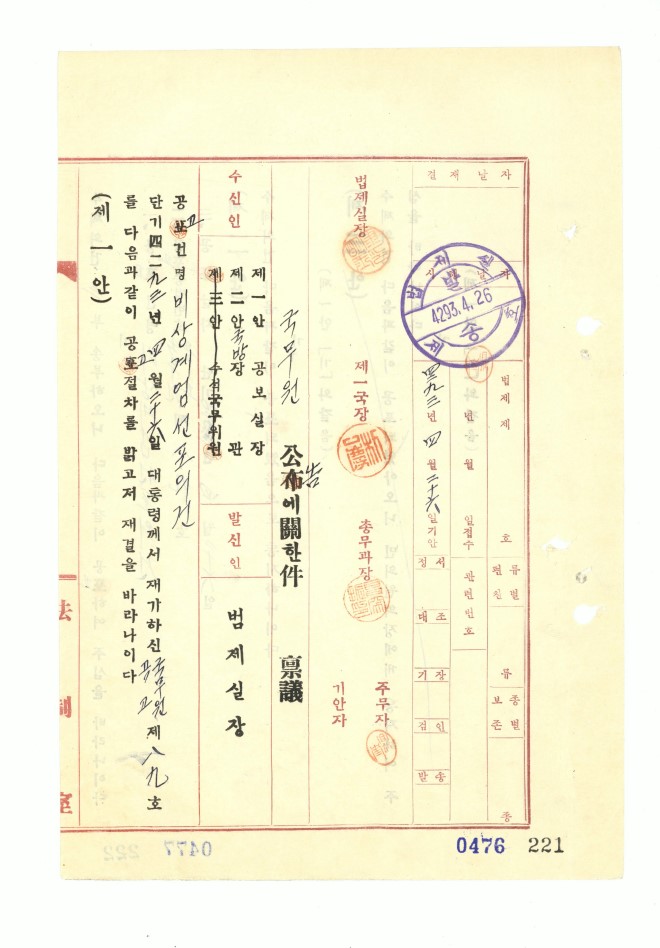 결재날자
법제실
발송
4293.4.26
법제제 호
년 월 일접수
四二九三년 四월 二十六일기안
류별
편찬
종별
보존
류
종
관련번호
정서
대조
기장
검인
발송
법제실장
제一국장
총무과장
주무자
기안자
국무원 公布에關한件 稟議
告
수신인
제一안 공보실장
제二안 국방장관
제三안 수석국무위원
발신인
법제실장
공포건명 비상계엄선포의건
고
단기四二九三年 四월二十六일 대통령께서 재가하신 국무원 공고 제八九호
를 다음과같이 공포절차를 밝고저 재결을 바라나이다
고
(제一안)
法制室
0476 221